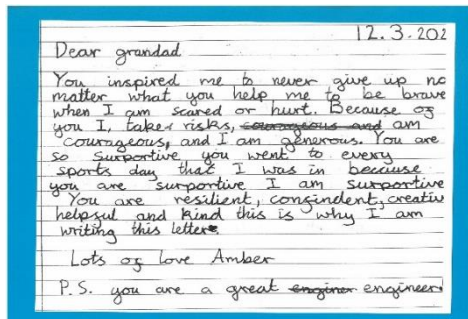 12.3.202
Dear grandad
You inspired me to never give up no
matter what you help me to be brave
when I am scared or hurt. Because of
you I, take risks, courageous and am
courageous, and I am generous. You are
so surportive you went to every
sports day that I was in because
you are surportive I am surportive
You are resilient, confindent, creativ
helpful and kind this is why I am
writing this letter.
Lots of love Amber
P.S. you are a great enginer engineer